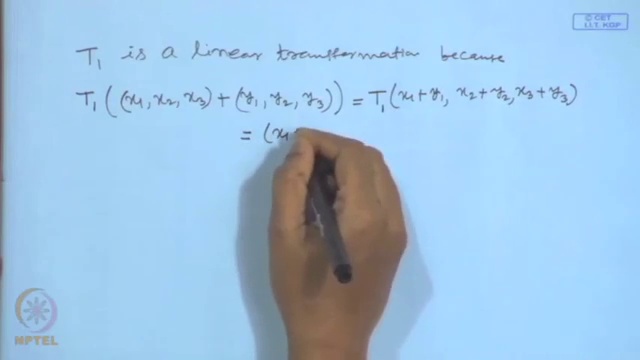 © CET
I.I.T. KGP
T₁ is a linear transformation because
T₁((x₁, x₂, x₃) + (y₁, y₂, y₃)) = T₁(x₁+y₁, x₂+y₂, x₃+y₃)
= (x₁
NPTEL